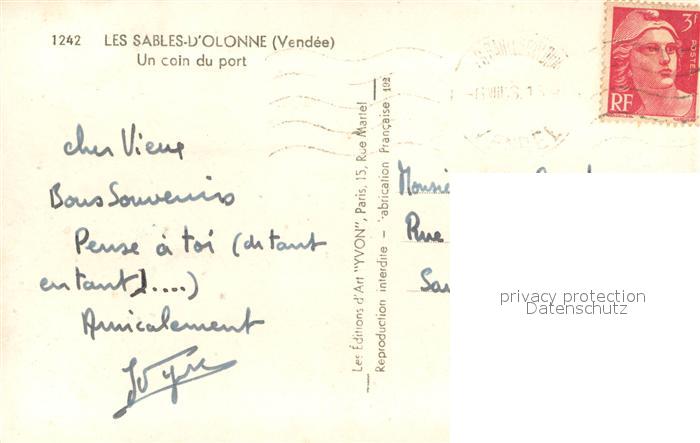 1242 LES SABLES-D'OLONNE (Vendée)
Un coin du port
3F
POSTES
RF
cher Vieux
Bons Souvenirs
Pense à toi (de tant
en tant)....)
Amicalement
Les Éditions d'Art "YVON", Paris, 15, Rue Martel
Reproduction interdite - Fabrication Française
Rue
privacy protection
Datenschutz